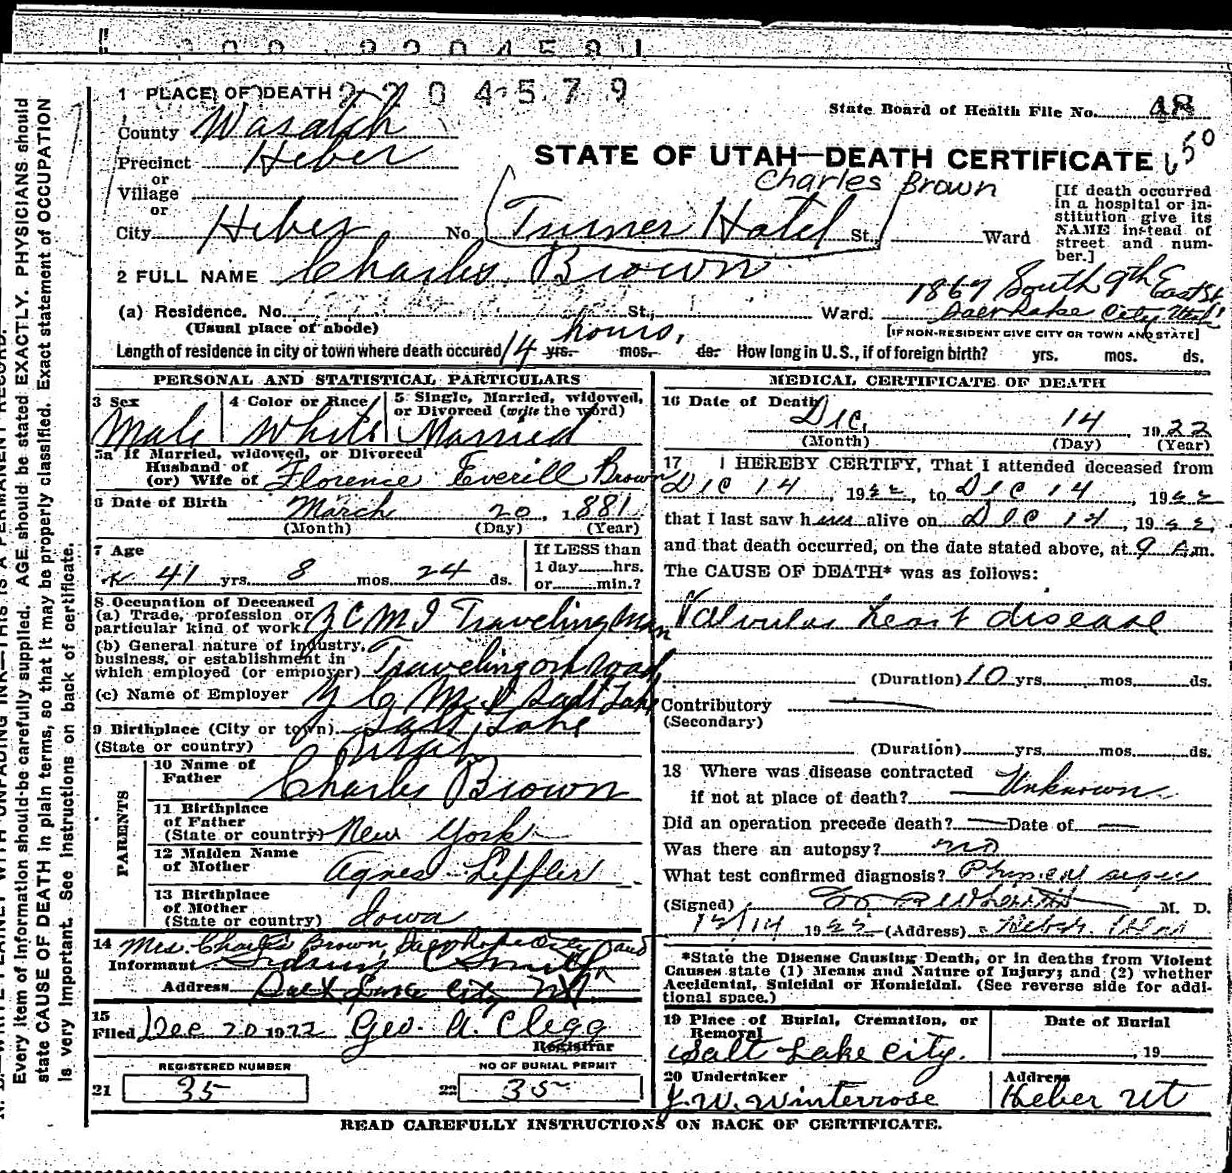 2204579
1 PLACE OF DEATH
State Board of Health File No. 48
County Wasatch
Precinct Heber
STATE OF UTAH—DEATH CERTIFICATE 650
or
Village
Charles Brown
[If death occurred in a hospital or institution give its NAME instead of street and number.]
or
City Heber No. Turner Hotel St. Ward
2 FULL NAME Charles Brown
1867 South 9th East St
(a) Residence. No. St., Ward. Salt Lake City Utah
(Usual place of abode) [IF NON-RESIDENT GIVE CITY OR TOWN AND STATE]
hours,
Length of residence in city or town where death occured 14 yrs. mos. ds. How long in U.S., if of foreign birth? yrs. mos. ds.
PERSONAL AND STATISTICAL PARTICULARS
3 Sex 4 Color or Race 5 Single, Married, widowed, or Divorced (write the word)
Male White Married
5a If Married, widowed, or Divorced
Husband of
(or) Wife of Florence Everill Brown
6 Date of Birth March 20, 1881
(Month) (Day) (Year)
7 Age
41 yrs. 8 mos. 24 ds.
If LESS than 1 day hrs. or min.?
8 Occupation of Deceased
(a) Trade, profession or particular kind of work Z C M I Traveling Man
(b) General nature of industry, business, or establishment in which employed (or employer) Traveling on road
(c) Name of Employer Z C M I Salt Lake
9 Birthplace (City or town) Salt Lake
(State or country) Utah
PARENTS
10 Name of Father Charles Brown
11 Birthplace of Father (State or country) New York
12 Maiden Name of Mother Agnes Leffler
13 Birthplace of Mother (State or country) Iowa
14 Mrs. Charles Brown, Salt Lake City and
Informant Sidney C Smith
Address Salt Lake City Ut
15
Filed Dec 20 1922 Geo. A. Clegg
Registrar
REGISTERED NUMBER NO OF BURIAL PERMIT
21 35 22 35
MEDICAL CERTIFICATE OF DEATH
16 Date of Death Dec. 14 1922
(Month) (Day) (Year)
17 I HEREBY CERTIFY, That I attended deceased from
Dec 14, 1922, to Dec 14, 1922
that I last saw h alive on Dec 14, 1922,
and that death occurred, on the date stated above, at 9 A.m.
The CAUSE OF DEATH* was as follows:
Valvular heart disease
(Duration) 10 yrs. mos. ds.
Contributory
(Secondary)
(Duration) yrs. mos. ds.
18 Where was disease contracted
if not at place of death? Unknown
Did an operation precede death? — Date of —
Was there an autopsy? no
What test confirmed diagnosis? Physical signs
(Signed) M. D.
12/14 1922 (Address) Heber, Utah
*State the Disease Causing Death, or in deaths from Violent
Causes state (1) Means and Nature of Injury; and (2) whether
Accidental, Suicidal or Homicidal. (See reverse side for additional space.)
19 Place of Burial, Cremation, or Removal Date of Burial
Salt Lake City. , 19
20 Undertaker Address
J. W. Winterrose Heber Ut
READ CAREFULLY INSTRUCTIONS ON BACK OF CERTIFICATE.
Every item of information should be carefully supplied. AGE should be stated EXACTLY. PHYSICIANS should
state CAUSE OF DEATH in plain terms, so that it may be properly classified. Exact statement of OCCUPATION
is very important. See instructions on back of certificate.